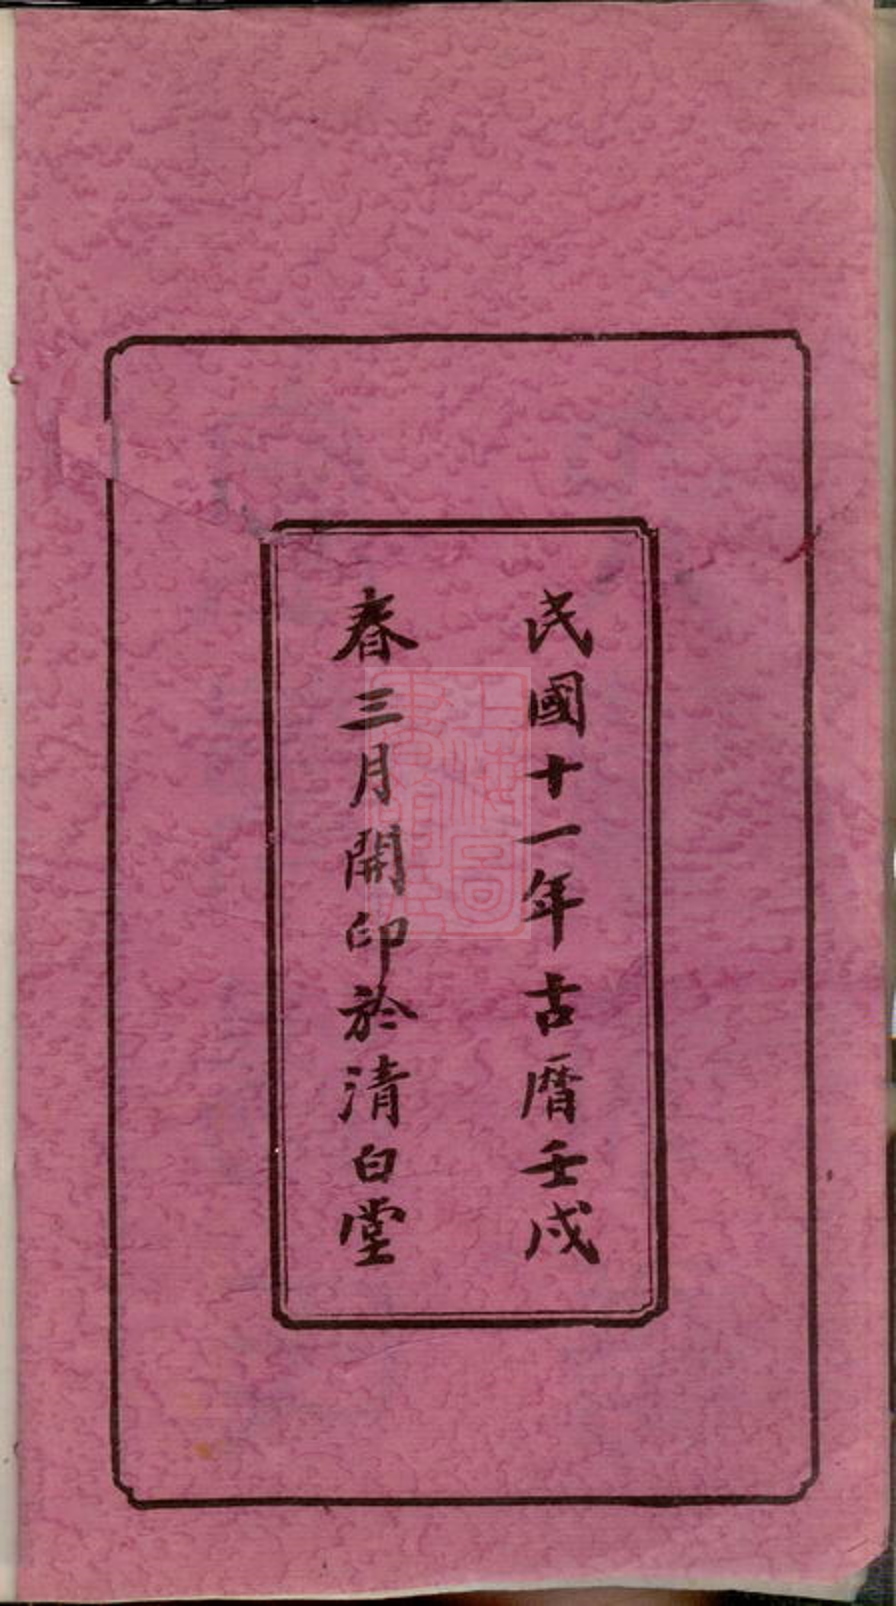 民國十一年古曆壬戌
春三月開印於清白堂
上海圖書館藏